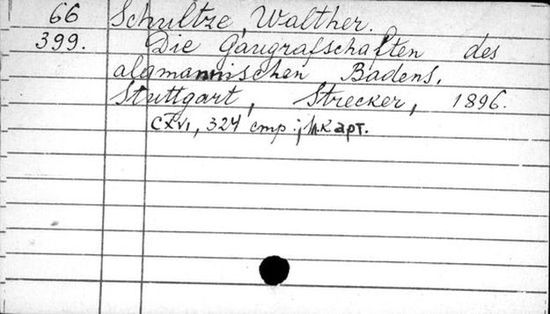 66 Schultze, Walther.
399. Die Gaugrafschaften des
alamannischen Badens.
Stuttgart, Strecker, 1896.
324 стр.; карт.